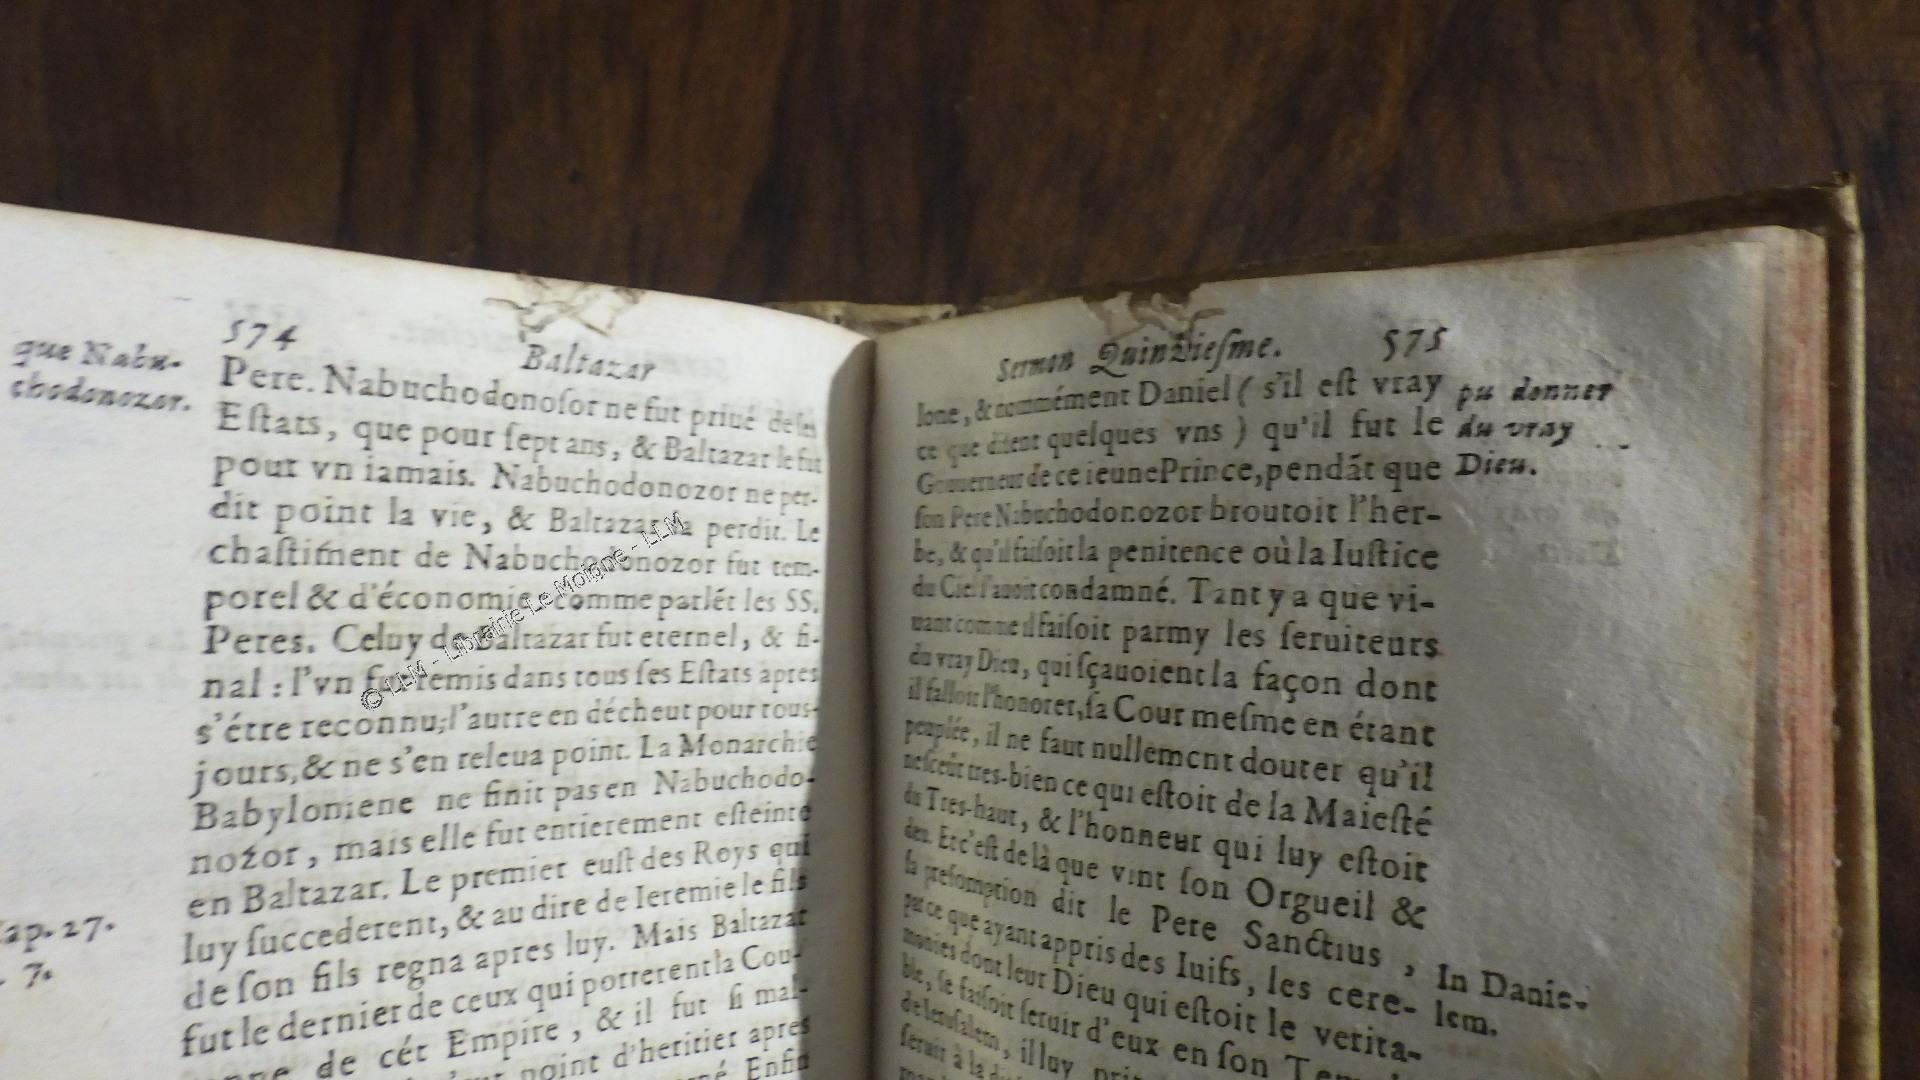 574
Baltazar
que Nabu-
chodonozor.
Pere. Nabuchodonoſor ne fut priué de ſes
Eſtats, que pour ſept ans, & Baltazar le fut
pour vn iamais. Nabuchodonozor ne per-
dit point la vie, & Baltazar la perdit. Le
chaſtiment de Nabuchodonozor fut tem-
porel & d'économie, comme parlét les SS.
Peres. Celuy de Baltazar fut eternel, & fi-
nal : l'vn fut remis dans tous ſes Eſtats apres
s'étre reconnu; l'autre en décheut pour tous-
jours, & ne s'en releua point. La Monarchie
Babyloniene ne finit pas en Nabuchodo-
nozor, mais elle fut entierement eſteinte
en Baltazar. Le premier euſt des Roys qui
luy ſuccederent, & au dire de Ieremie le fils
de ſon fils regna apres luy. Mais Baltazar
fut le dernier de ceux qui porterent la Cou-
de cét Empire, & il fut ſi mal-
point d'heritier apres
Enfin
Cap. 27.
7.
© LLM - Librairie Le Moigne - LLM
Sermon Quinzieſme.
575
lone, & nommément Daniel ( s'il eſt vray
ce que diſent quelques vns ) qu'il fut le
Gouuerneur de ce ieune Prince, pendāt que
ſon Pere Nabuchodonozor broutoit l'her-
be, & qu'il faiſoit la penitence où la Iuſtice
du Ciel l'auoit condamné. Tant y a que vi-
uant comme il faiſoit parmy les ſeruiteurs
du vray Dieu, qui ſçauoient la façon dont
il falloit l'honorer, ſa Cour meſme en étant
peuplée, il ne faut nullement douter qu'il
ne ſceût tres-bien ce qui eſtoit de la Maieſté
du Tres-haut, & l'honneur qui luy eſtoit
deu. Et c'eſt de là que vint ſon Orgueil &
ſa preſomption dit le Pere Sanctius,
parce que ayant appris des Iuifs, les cere-
monies dont leur Dieu qui eſtoit le verita-
ble, ſe faiſoit ſeruir d'eux en ſon
de Ieruſalem, il luy
ſeruir à la
pu donner
du vray
Dieu.
In Danie-
lem.